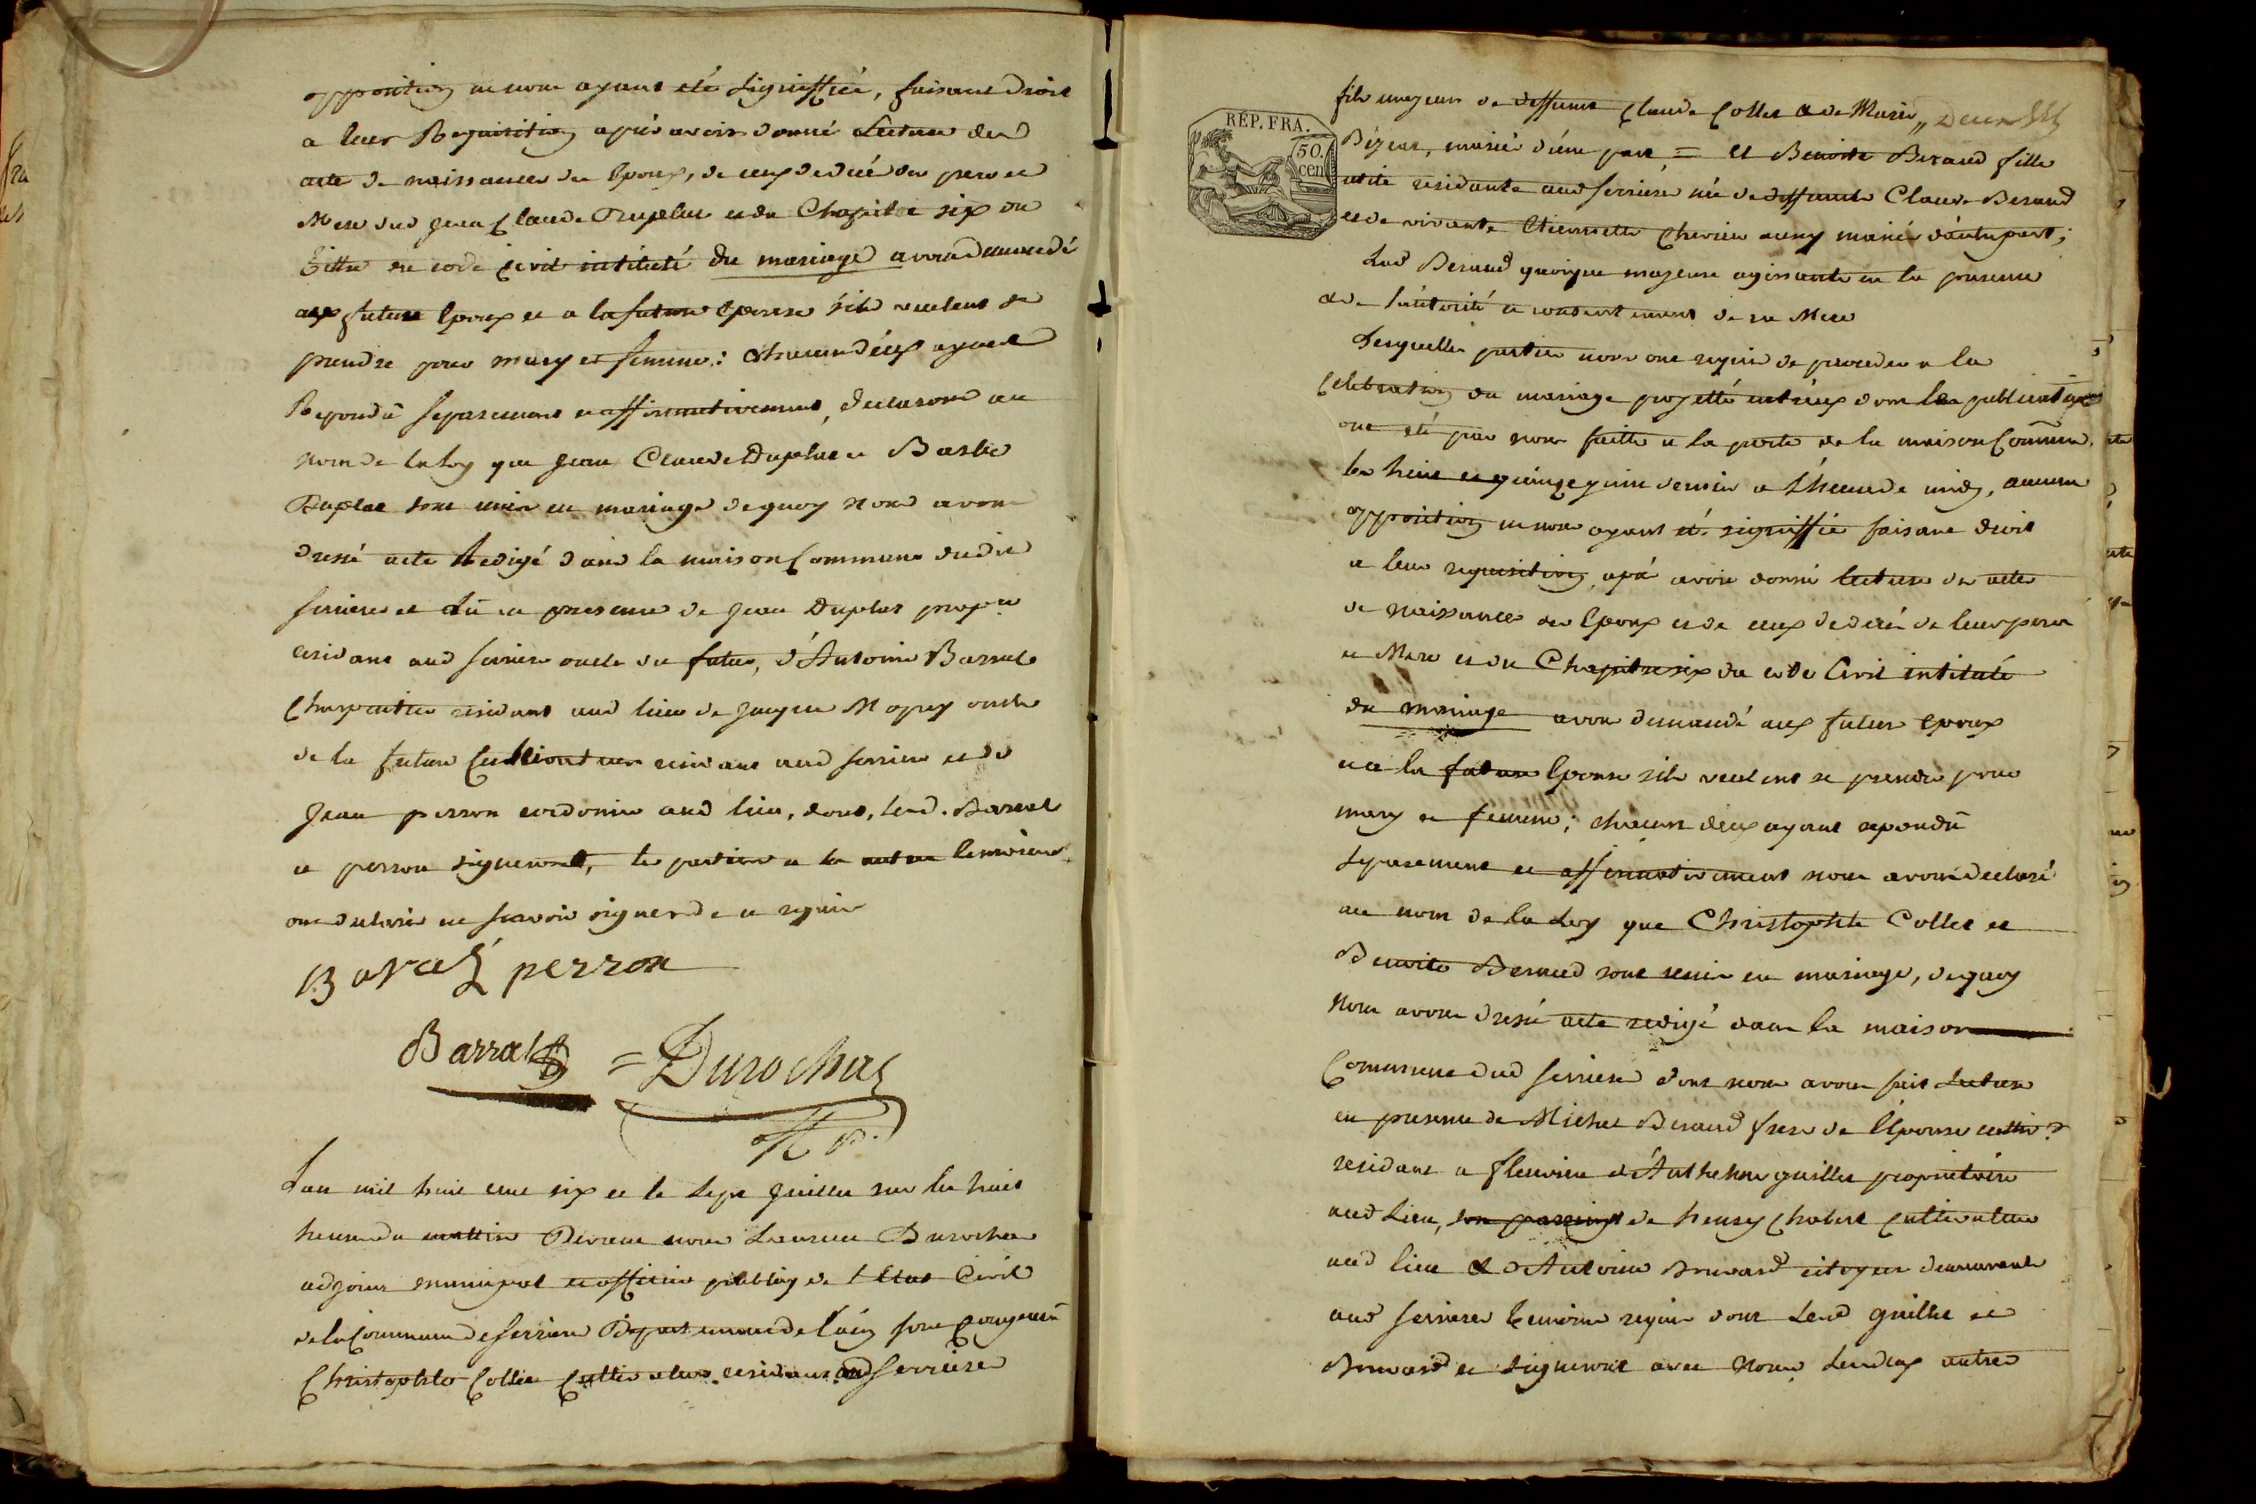 opposition ne nous ayant été signiffiée, faisant droit
a leur Requisition après avoir donné Lecture des
acte de naissances des Epoux, de ceux de décé des pere et
Mere dud Jean Claude Duplat et du Chapitre six du
Tittre du code Civil intitulé du mariage avons demandé
aux future Epoux et a la future Epouse s'ils veulent se
prendre pour mary et femme: chacun d'eux ayant
Repondû separement et affirmativement, declarons au
nom de la loy que Jean Claude Duplat et
Duplat sont unis en mariage de quoy Nous avons
dressé acte Redigé dans la maison Commune dudit
serriere et Lû en presence de Jean Duplat prop.re
residant aud serriere oncle du futur, d'Antoine Barral
Charpentier residant aud lieu de Jaque Mopey oncle
de la future Cultivateur residant aud serriere et de
Jean perron cordonier aud lieu, dont, led. Barral
et perron signeront, les parties et les autres temoins
ont declaré ne scavoir signer de ce requis
Baral perron
Barral = Durochat
L'an mil huit cent six et le sept Juillet sur les huit
heures du mattin Pardevant nous Laurent Durochat
adjoint municipal et officier public de l'Etat Civil
de la Commune de serriere Departement de l'ain sont comparus
Christophle Collet Cultivateur residant aud serriere
RÉP. FRA.
50.
cen
fils majeur de deffunt Claude Collet & de Marie
Bizeat, mariés d'une part = et Benoite Beraud fille
residante aud serriere née de deffunt Claude Beraud
et de vivante Etiennette Chevrier aussy mariés d'autre part;
Lad Beraud quoique majeure agissante en la presence
de l'autorité et consentement de sa Mere
Lesquelles parties nous ont requis de proceder a la
Celebration du mariage projetté entr'eux dont les publications
ont été par nous faitte a la porte de la maison Commune,
les huit et quinze juin dernier a l'heure de midy, aucune
opposition ne nous ayant été signiffiée faisant droit
a leur requisition, apré avoir donné lecture des acte
de Naissances des Epoux et de ceux de décés de leurs peres
et Mere et du Chapitre six du code Civil intitulé
du mariage avons demandé aux future epoux
et a la future Epouse s'ils veulent se prendre pour
mary et femme; chacun d'eux ayant repondû
separement et affirmativement nous avons declaré
au nom de la Loy que Christophle Collet et
Benoite Beraud sont unis en mariage, de quoy
Nous avons dressé acte redigé dans la maison
Commune dud serriere dont nous avons fait Lecture
en presence de Michel Beraud frere de l'Epouse
residant a fleurieu d'Anthelme guillet proprietaire
aud Lieu, de henry Chabert Cultivateur
aud lieu & d'Antoine Bruvard citoyen demeurant
aud serriere temoins requis dont Led guillet et
Bruvard et signeront avec Nous, Les deux autres